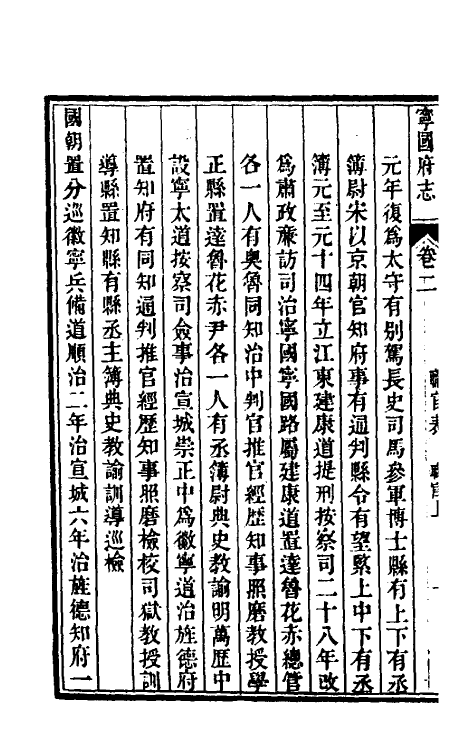 寧國府志
卷二
職官表
職官上
元年復爲太守有別駕長史司馬參軍博士縣有上下有丞
簿尉宋以京朝官知府事有通判縣令有望緊上中下有丞
簿元至元十四年立江東建康道提刑按察司二十八年改
爲肅政亷訪司治寧國寧國路屬建康道置達魯花赤總管
各一人有奧魯同知治中判官推官經歴知事照磨教授學
正縣置達魯花赤尹各一人有丞簿尉典史教諭明萬歴中
設寧太道按察司僉事治宣城崇正中爲徽寧道治旌德府
置知府有同知通判推官經歴知事照磨檢校司獄教授訓
導縣置知縣有縣丞主簿典史教諭訓導巡檢
國朝置分巡徽寧兵備道順治二年治宣城六年治旌德知府一